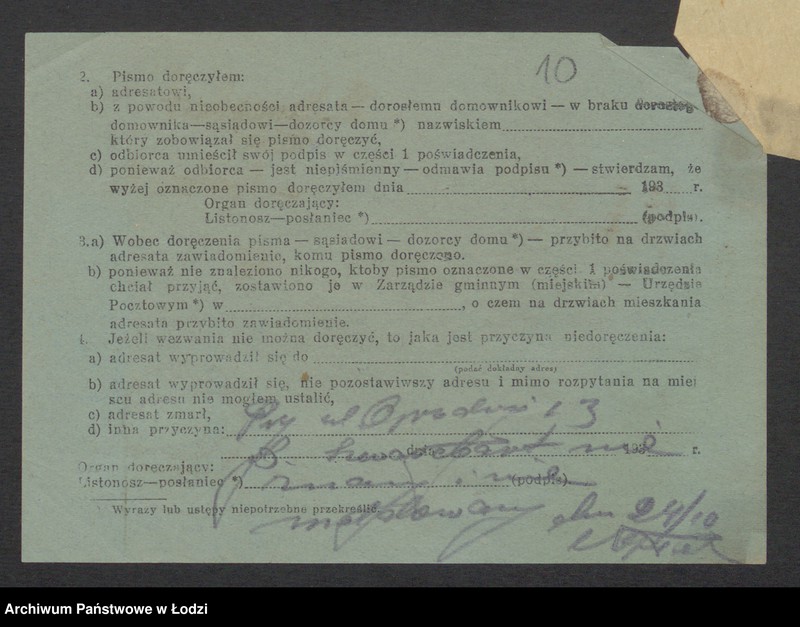 10
2. Pismo doręczyłem:
a) adresatowi,
b) z powodu nieobecności adresata — dorosłemu domownikowi — w braku dorosłego
domownika—sąsiadowi—dozorcy domu *) nazwiskiem
który zobowiązał się pismo doręczyć,
c) odbiorca umieścił swój podpis w części 1 poświadczenia,
d) ponieważ odbiorca — jest niepiśmienny — odmawia podpisu *) — stwierdzam, że
wyżej oznaczone pismo doręczyłem dnia 193 r.
Organ doręczający:
Listonosz—posłaniec *) (podpis).
3. a) Wobec doręczenia pisma — sąsiadowi — dozorcy domu *) — przybito na drzwiach
adresata zawiadomienie, komu pismo doręczono.
b) ponieważ nie znaleziono nikogo, ktoby pismo oznaczone w części 1 poświadczenia
chciał przyjąć, zostawiono je w Zarządzie gminnym (miejskim) — Urzędzie
Pocztowym *) w , o czem na drzwiach mieszkania
adresata przybito zawiadomienie.
4. Jeżeli wezwania nie można doręczyć, to jaka jest przyczyna niedoręczenia:
a) adresat wyprowadził się do
(podać dokładny adres)
b) adresat wyprowadził się, nie pozostawiwszy adresu i mimo rozpytania na miej
scu adresu nie mogłem ustalić,
c) adresat zmarł,
d) inna przyczyna: Przy ul 13
dnia nie 193 r.
Organ doręczający:
Listonosz—posłaniec *) (podpis)
Wyrazy lub ustępy niepotrzebne przekreślić.
meldowany dn 24/10
Archiwum Państwowe w Łodzi